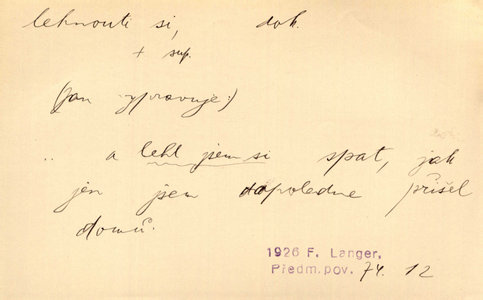 lehnouti si, dok.
+ sup.
(pan vypravuje:)
.. a lehl jsem si spat, jak
jen jsem dopoledne přišel
domů.
1926 F. Langer,
Předm. pov. 74. 12